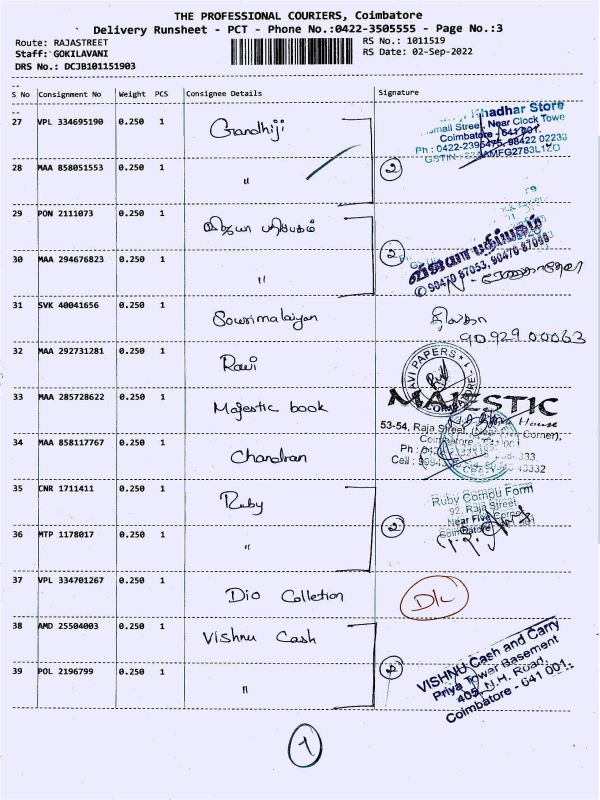 THE PROFESSIONAL COURIERS, Coimbatore
Delivery Runsheet - PCT - Phone No.:0422-3505555 - Page No.:3
Route: RAJASTREET
RS No.: 1011519
Staff: GOKILAVANI
RS Date: 02-Sep-2022
DRS No.: DCJB101151903
S No Consignment No Weight PCS Consignee Details Signature
27 VPL 334695190 0.250 1 Gandhiji
Khadhar Store
Street, Near Clock Towe
Coimbatore - 641 001.
Ph : 0422-2395475, 98422 02233
28 MAA 858051553 0.250 1 "
2
29 PON 2111073 0.250 1 விஜயா பதிப்பகம்
30 MAA 294676823 0.250 1 "
2
விஜயா பதிப்பகம்
90470 87053, 90470 87058
31 SVK 40041656 0.250 1 Sowrimalaiyan
90.929.00063
32 MAA 292731281 0.250 1 Ravi
RAVI PAPERS
COIMBATORE
33 MAA 285728622 0.250 1 Majestic book
MAJESTIC
House
53-54, Raja Street, (Near Five Corner),
34 MAA 858117767 0.250 1 Chandran
35 CNR 1711411 0.250 1 Ruby
Ruby Compu Form
92, Raja Street
Near Five Corner
Coimbatore
36 MTP 1178017 0.250 1 "
2
37 VPL 334701267 0.250 1 Dio Colletion
D/L
38 AMD 25504003 0.250 1 Vishnu Cash
39 POL 2196799 0.250 1 "
2
VISHNU Cash and Carry
Priya Tower Basement
405, N.H. Road,
Coimbatore - 641 001.
1